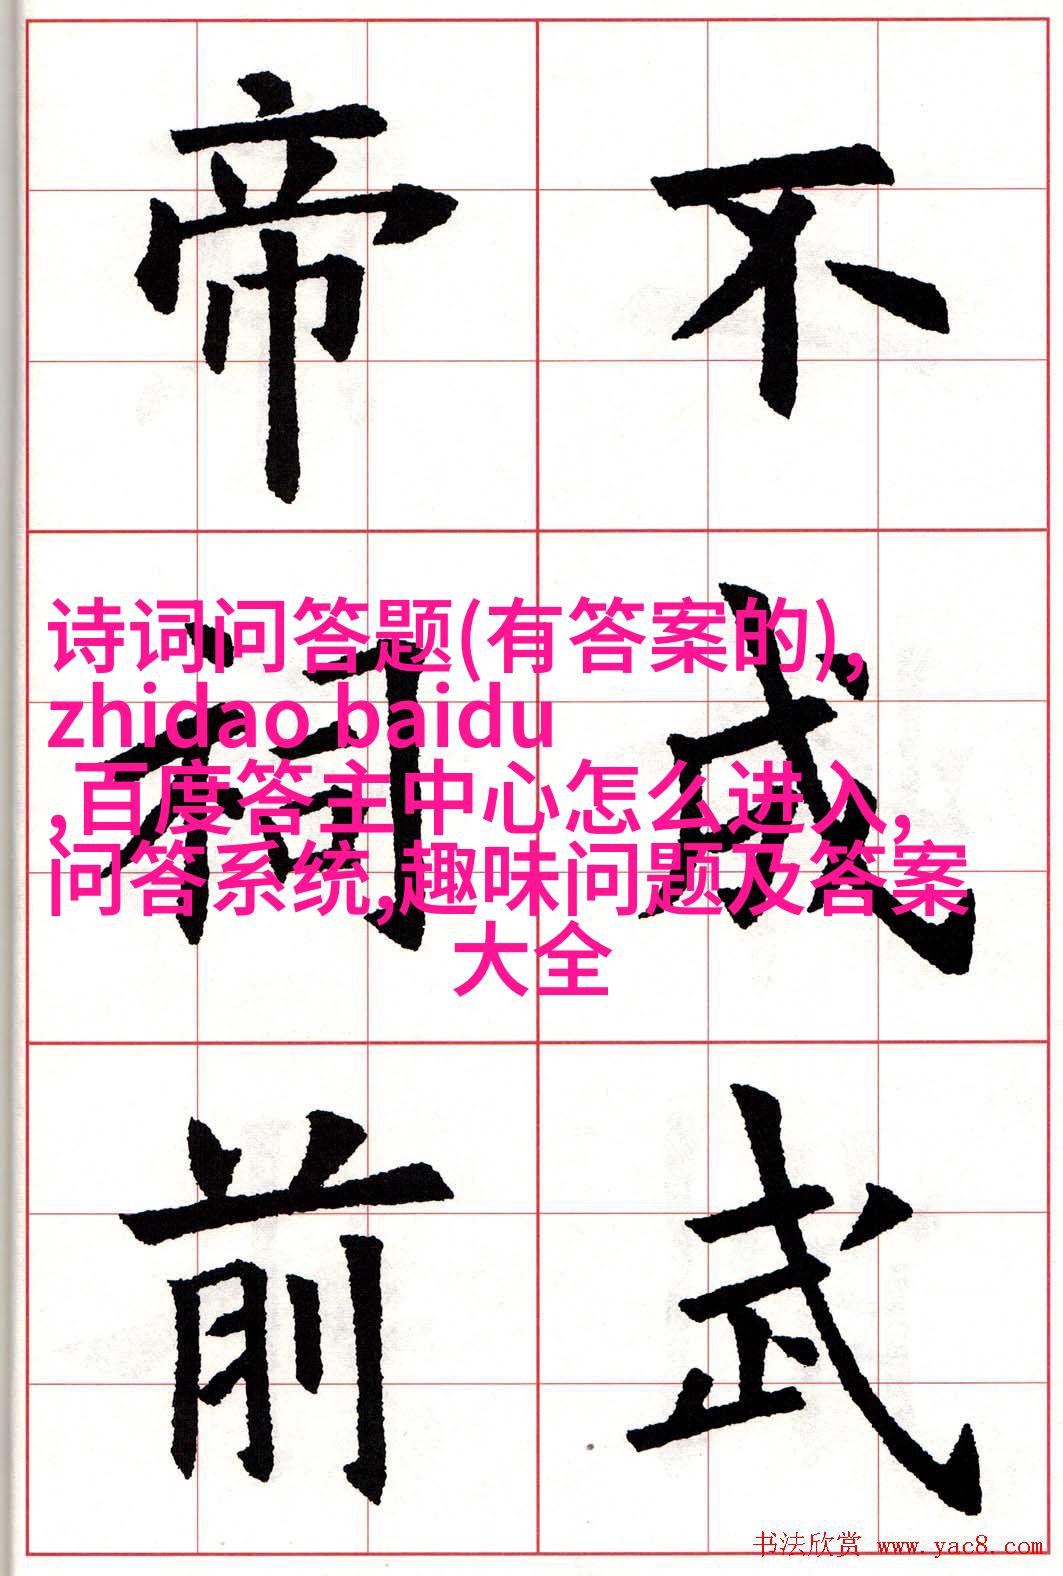 不成武
帝祠前
诗词问答题(有答案的),
zhidao baidu
,百度答主中心怎么进入,
问答系统,趣味问题及答案
大全
书法欣赏 www.yac8.com